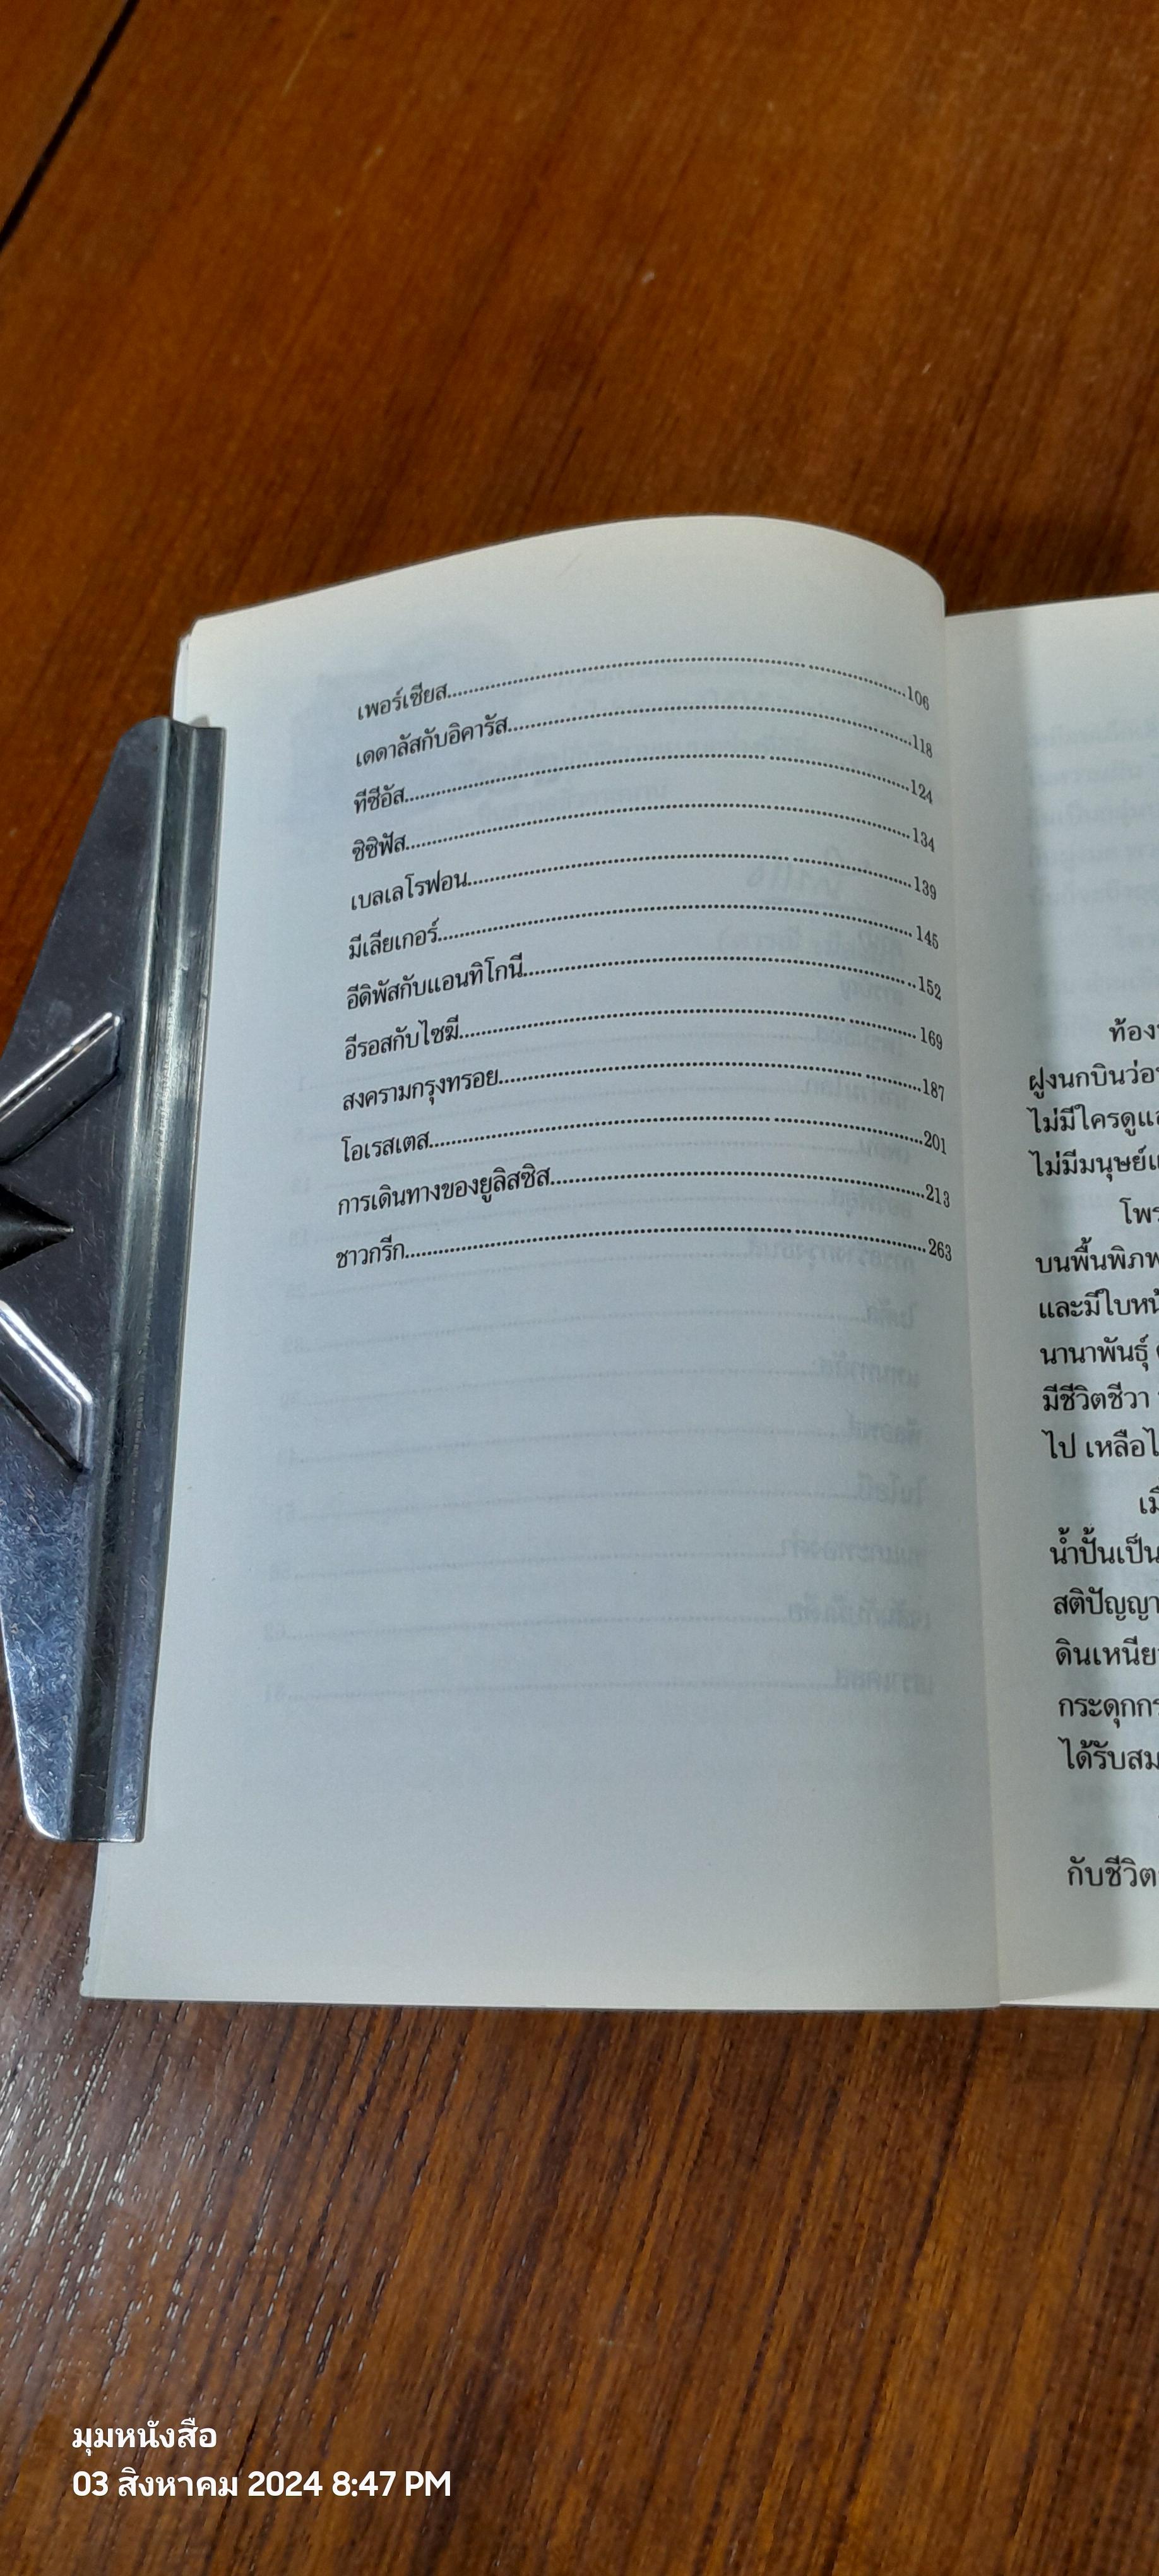 เพอร์เซียส....................106
เดดาลัสกับอิคารัส....................118
ทีซีอัส....................124
ซิซิฟัส....................134
เบลเลโรฟอน....................139
มีเลียเกอร์....................145
อีดิพัสกับแอนทิโกนี....................152
อีรอสกับไซฆี....................169
สงครามกรุงทรอย....................187
โอเรสเตส....................201
การเดินทางของยูลิสซิส....................213
ชาวกรีก....................263
ท้อง
ฝูงนกบินว่อน
ไม่มีใครดูแล
ไม่มีมนุษย์
โพร
บนพื้นพิภพ
และมีใบหน้
นานาพันธุ์
มีชีวิตชีวา
ไป เหลือ
เมื
น้ำปั้นเป็น
สติปัญญา
ดินเหนีย
กระดุกกร
ได้รับสม
กับชีวิต
มุมหนังสือ
03 สิงหาคม 2024 8:47 PM